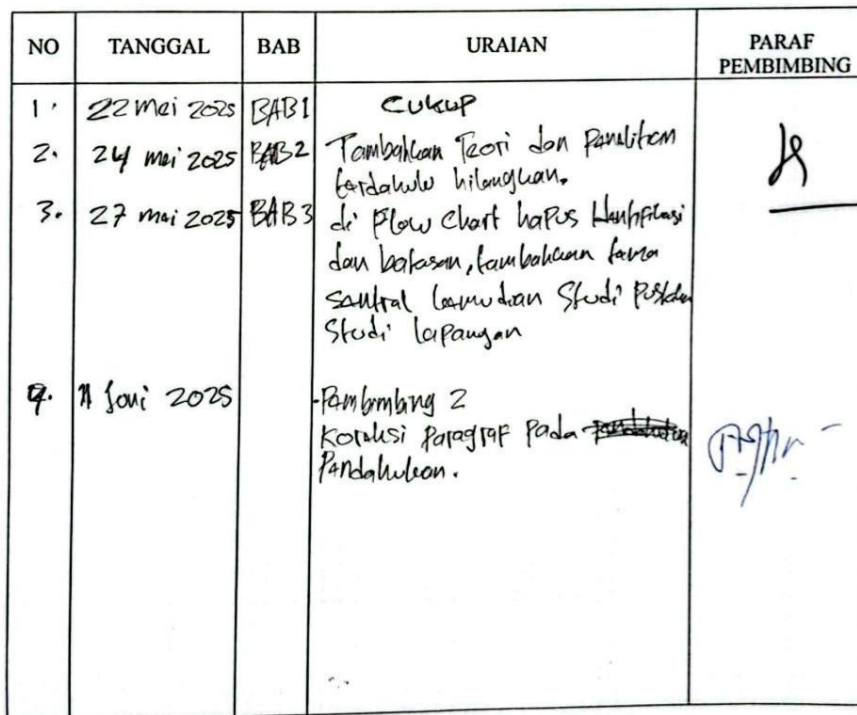 NO TANGGAL BAB URAIAN PARAF PEMBIMBING
1. 22 Mei 2025 BAB1 CUKUP
2. 24 mei 2025 BAB2 Tambahkan Teori dan Penelitian
terdahulu hilangkan.
3. 27 mei 2025 BAB3 di Flow Chart haPus Identifikasi
dan batasan, tambahkan
sentral kemudian Studi Pustaka
Studi laPangan
4. Juni 2025 -Pembimbing 2
Koreksi Paragraf Pada
Pendahuluan.